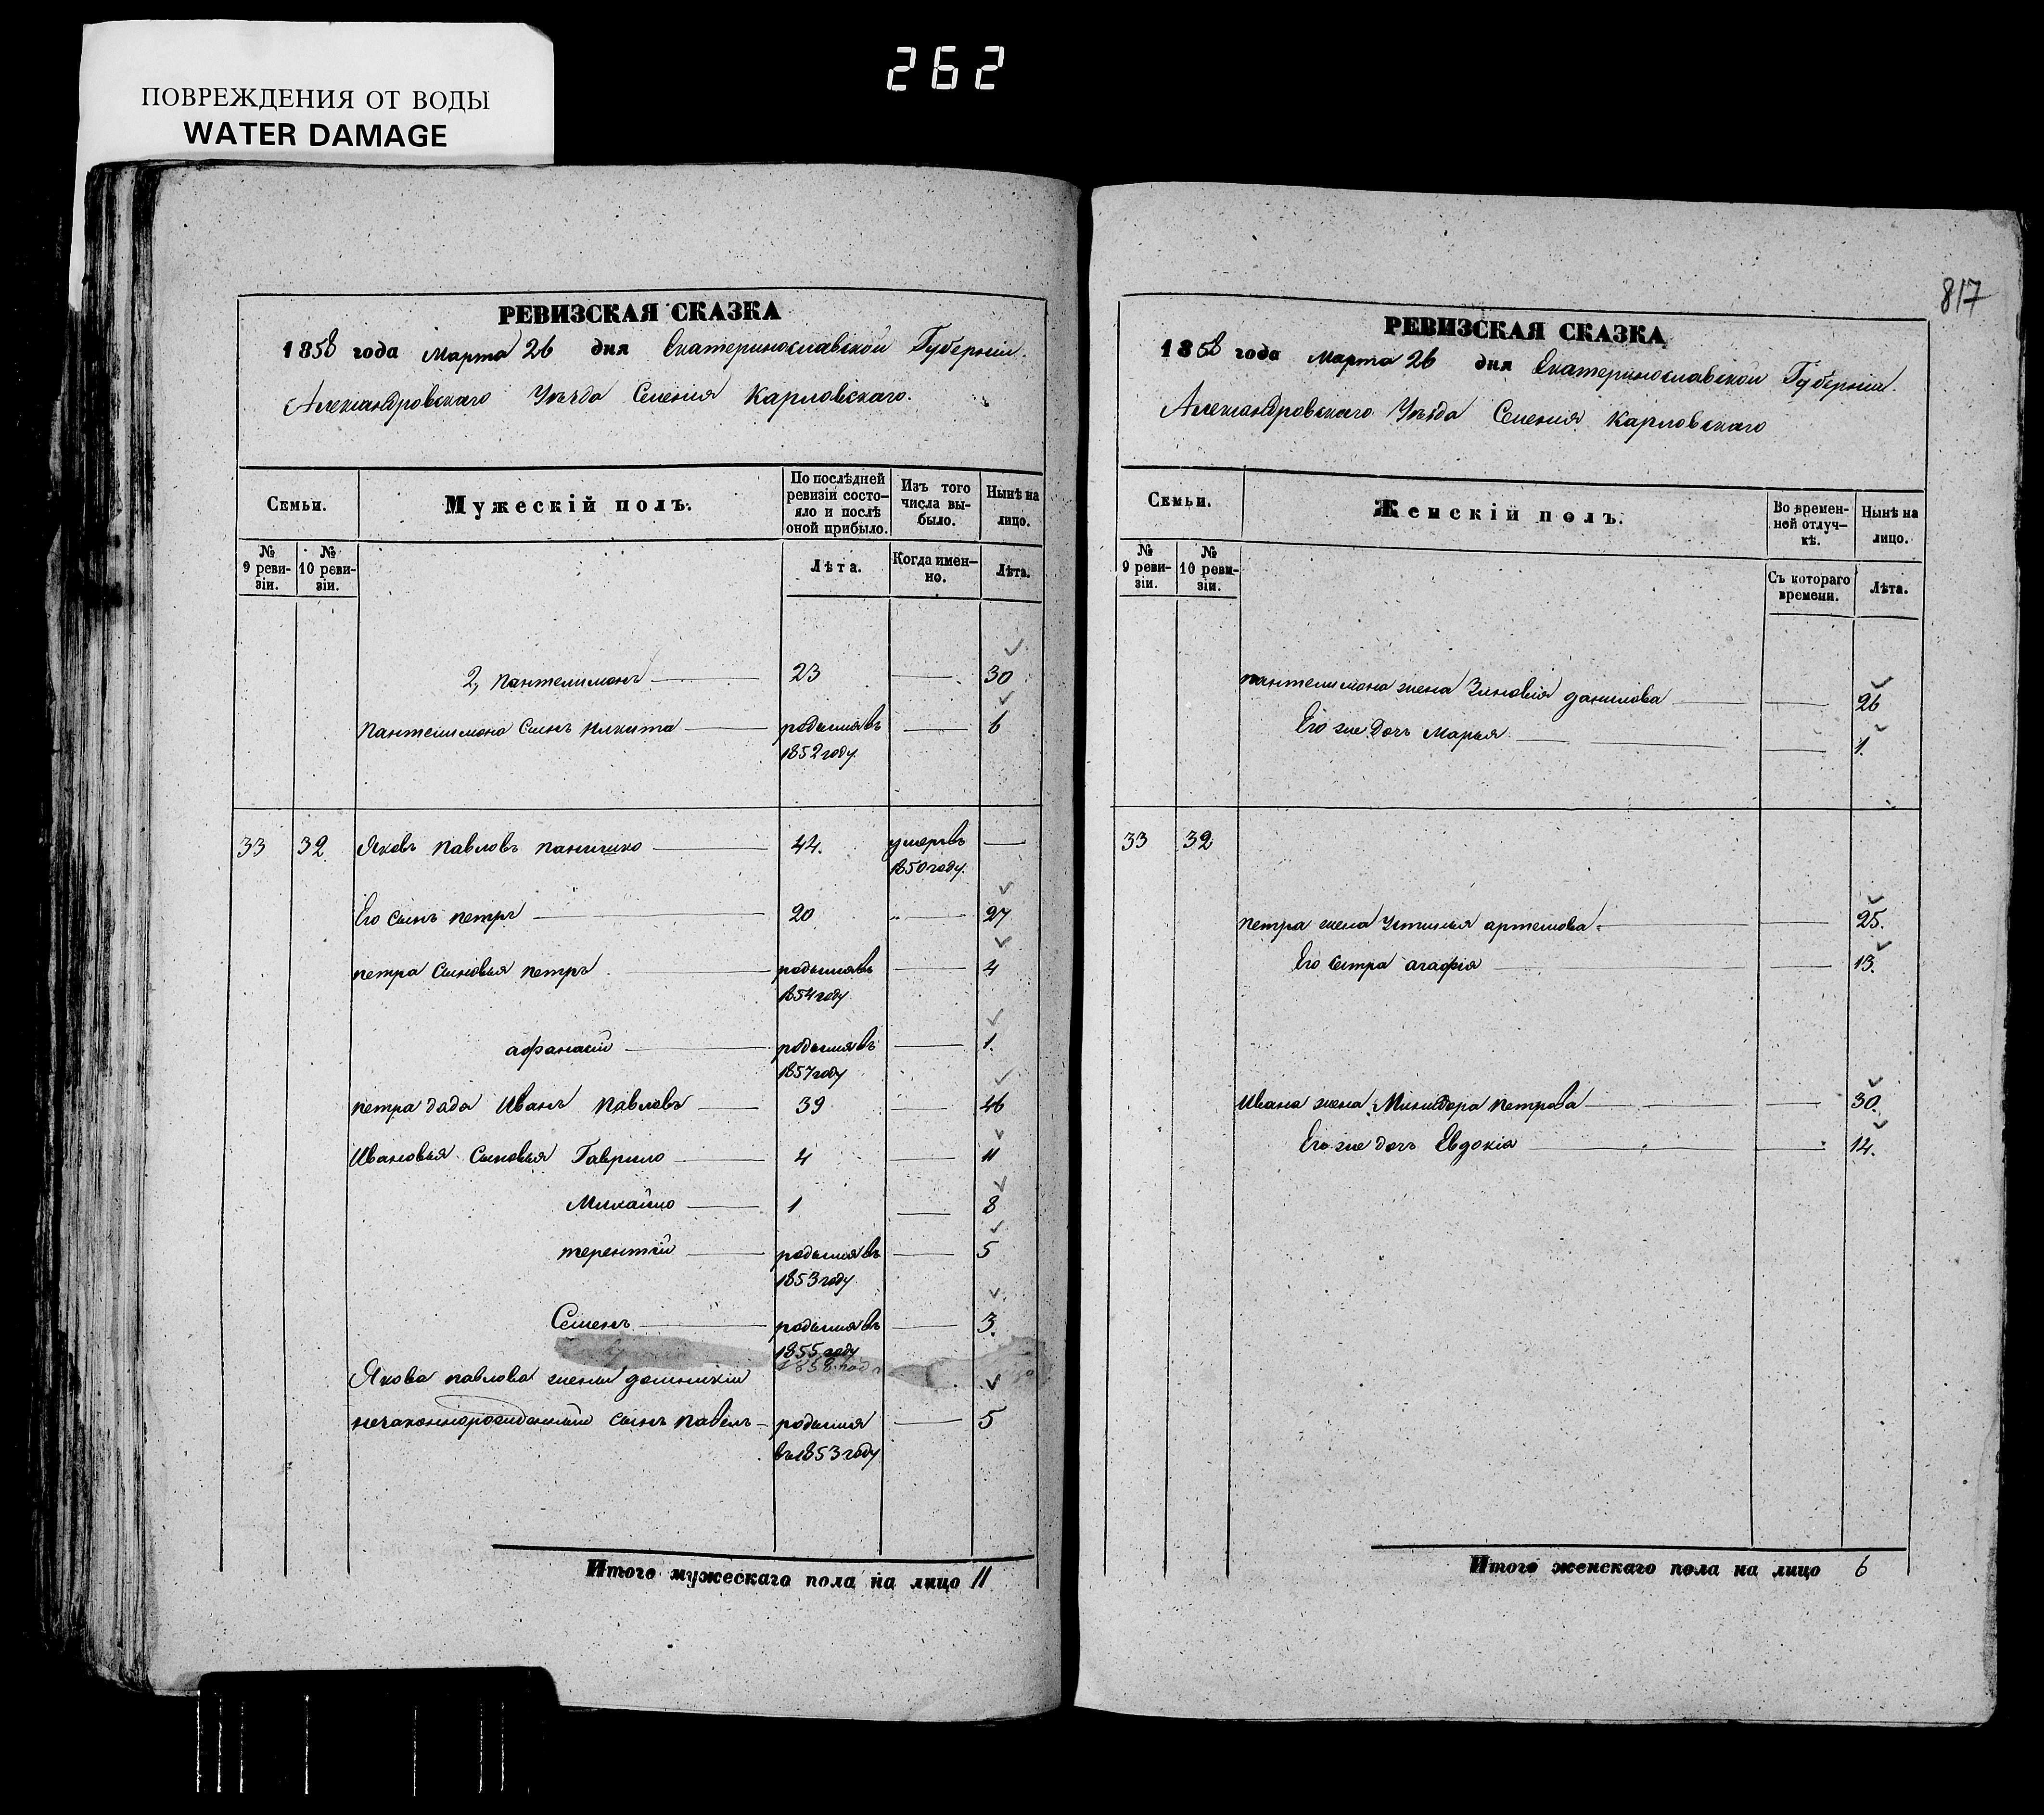 262
ПОВРЕЖДЕНИЯ ОТ ВОДЫ
WATER DAMAGE
РЕВИЗСКАЯ СКАЗКА
1858 года Марта 26 дня Екатеринославской Губерніи.
Александровскаго Уѣзда Селенія Карловскаго.
Семьи.
Мужескій полъ.
По послѣдней
ревизіи состо-
яло и послѣ
оной прибыло.
Изъ того
числа вы-
было.
Нынѣ на
лицо.
№
9 реви-
зіи.
№
10 реви-
зіи.
Лѣта.
Когда имен-
но.
Лѣта.
2, Пантелимонъ 23 30
Пантелимона Сынъ Никита родился въ 6
1852 году
33 32 Яковъ Павловъ 44. умеръ въ
1850 году.
Его сынъ петръ 20 27
петра Сыновья петръ родился въ 4
1854 году
афанасій родился въ 1.
1857 году
петра дядя Иванъ Павловъ 39 46
Ивановыя Сыновья Гаврило 4 11
Михайло 1 8
терентій родился въ 5
1853 году
Семенъ родился въ 3.
1855 году
Якова павлова жены
незаконнорожденный сынъ павелъ родился 5
въ 1853 году
Итого мужескаго пола на лицо 11
817
РЕВИЗСКАЯ СКАЗКА
1858 года Марта 26 дня Екатеринославской Губерніи.
Александровскаго Уѣзда Селенія Карловскаго
Семьи.
Женскій полъ.
Во времен-
ной отлуч-
кѣ.
Нынѣ на
лицо.
№
9 реви-
зіи.
№
10 реви-
зіи.
Съ котораго
времени.
Лѣта.
пантелимона жена Зиновія данилова 26
Его же Дочь Марья 1.
33 32
петра жена Устинья артемова 25.
Его сестра агафія 13.
Ивана жена Минидора петрова 30.
Его же дочь Евдокія 14.
Итого женскаго пола на лицо 6